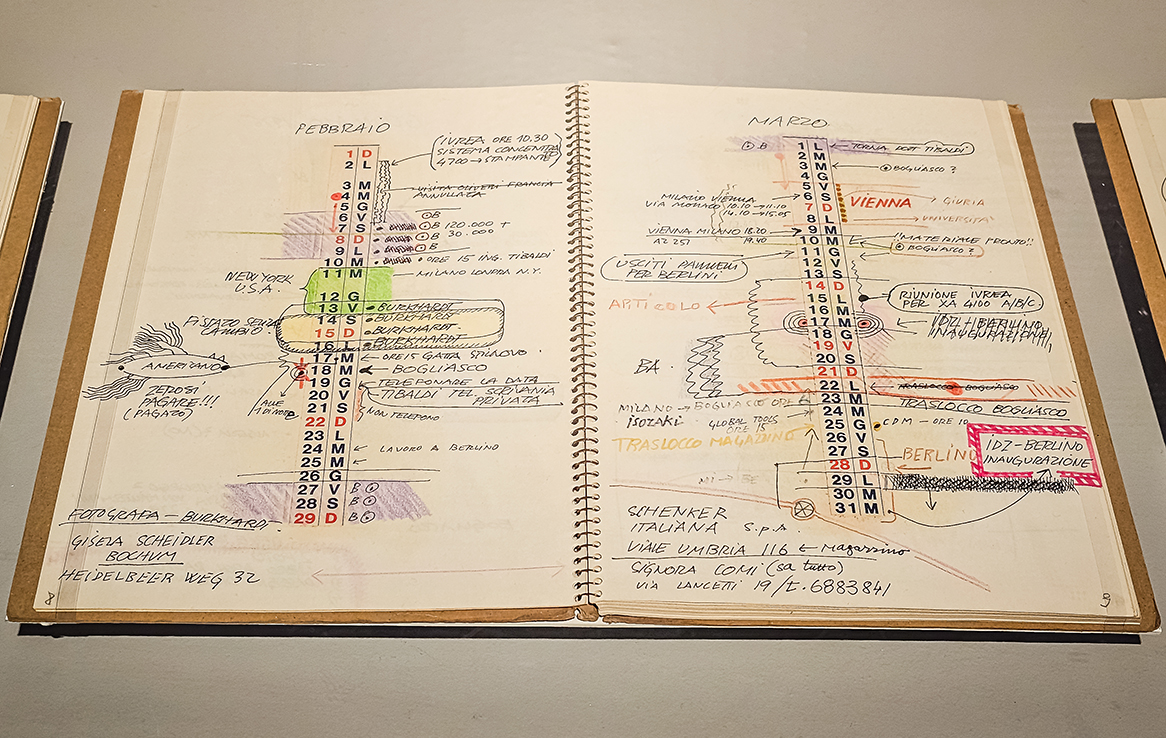 FEBBRAIO
1 D
2 L
3 M
4 M
5 G
6 V
7 S
8 D
9 L
10 M
11 M
12 G
13 V
14 S
15 D
16 L
17 M
18 M
19 G
20 V
21 S
22 D
23 L
24 M
25 M
26 G
27 V
28 S
29 D
IVREA ORE 10.30
SISTEMA CONCENTRA
4700 → STAMPANTE
VISITA OLIVETI FRANCIA
ANNULLATA
B
B 120.000 +
30.000
B
ORE 15 ING. TIBALDI
MILANO LONDRA N.Y.
NEW YORK
U.S.A.
BURKHARDT
BURKHARDT
BURKHARDT
BURKHARDT
CAMBIO
ORE 15 GATTA
BOGLIASCO
AMERICANO
PAGARE!!!
(PAGATO)
ALLE
TELEFONARE LA DATA
TIBALDI TEL. SCRIVANIA
PRIVATA
NON TELEFONO
LAVORO A BERLINO
B
B
B
FOTOGRAFA — BURKHARDT
GISELA SCHEIDLER
BOCHUM
HEIDELBEER WEG 32
MARZO
1 L
2 M
3 M
4 G
5 V
6 S
7 D
8 L
9 M
10 M
11 G
12 V
13 S
14 D
15 L
16 M
17 M
18 G
19 V
20 S
21 D
22 L
23 M
24 M
25 G
26 V
27 S
28 D
29 L
30 M
31 M
B
TORNA DOTT TIBALDI
BOGLIASCO ?
MILANO VIENNA
VIA MONACO 10.10 → 11.10
14.10 → 15.05
VIENNA → GIURIA
→ UNIVERSITA'
VIENNA MILANO 18.20
AZ 251 19.40
"MATERIALE PRONTO"!!
BOGLIASCO ?
USCITI PANNELLI
PER BERLINO
RIUNIONE IVREA
PER XA 4100 A/B/C.
ARTICOLO
IDZ - BERLINO
INAUGURAZIONE
BA
TRASLOCCO BOGLIASCO
TRASLOCCO BOGLIASCO
MILANO → BOGLIASCO ORE
ISOZAKI GLOBAL TOOLS
ORE 15
CDM — ORE 10
TRASLOCCO MAGAZZINO
BERLINO
IDZ - BERLINO
INAUGURAZIONE
MI → BE
SCHENKER
ITALIANA S.p.A
VIALE UMBRIA 116 ← Magazzino
SIGNORA COMI (sa tutto)
VIA LANCETTI 19/t. 6883841